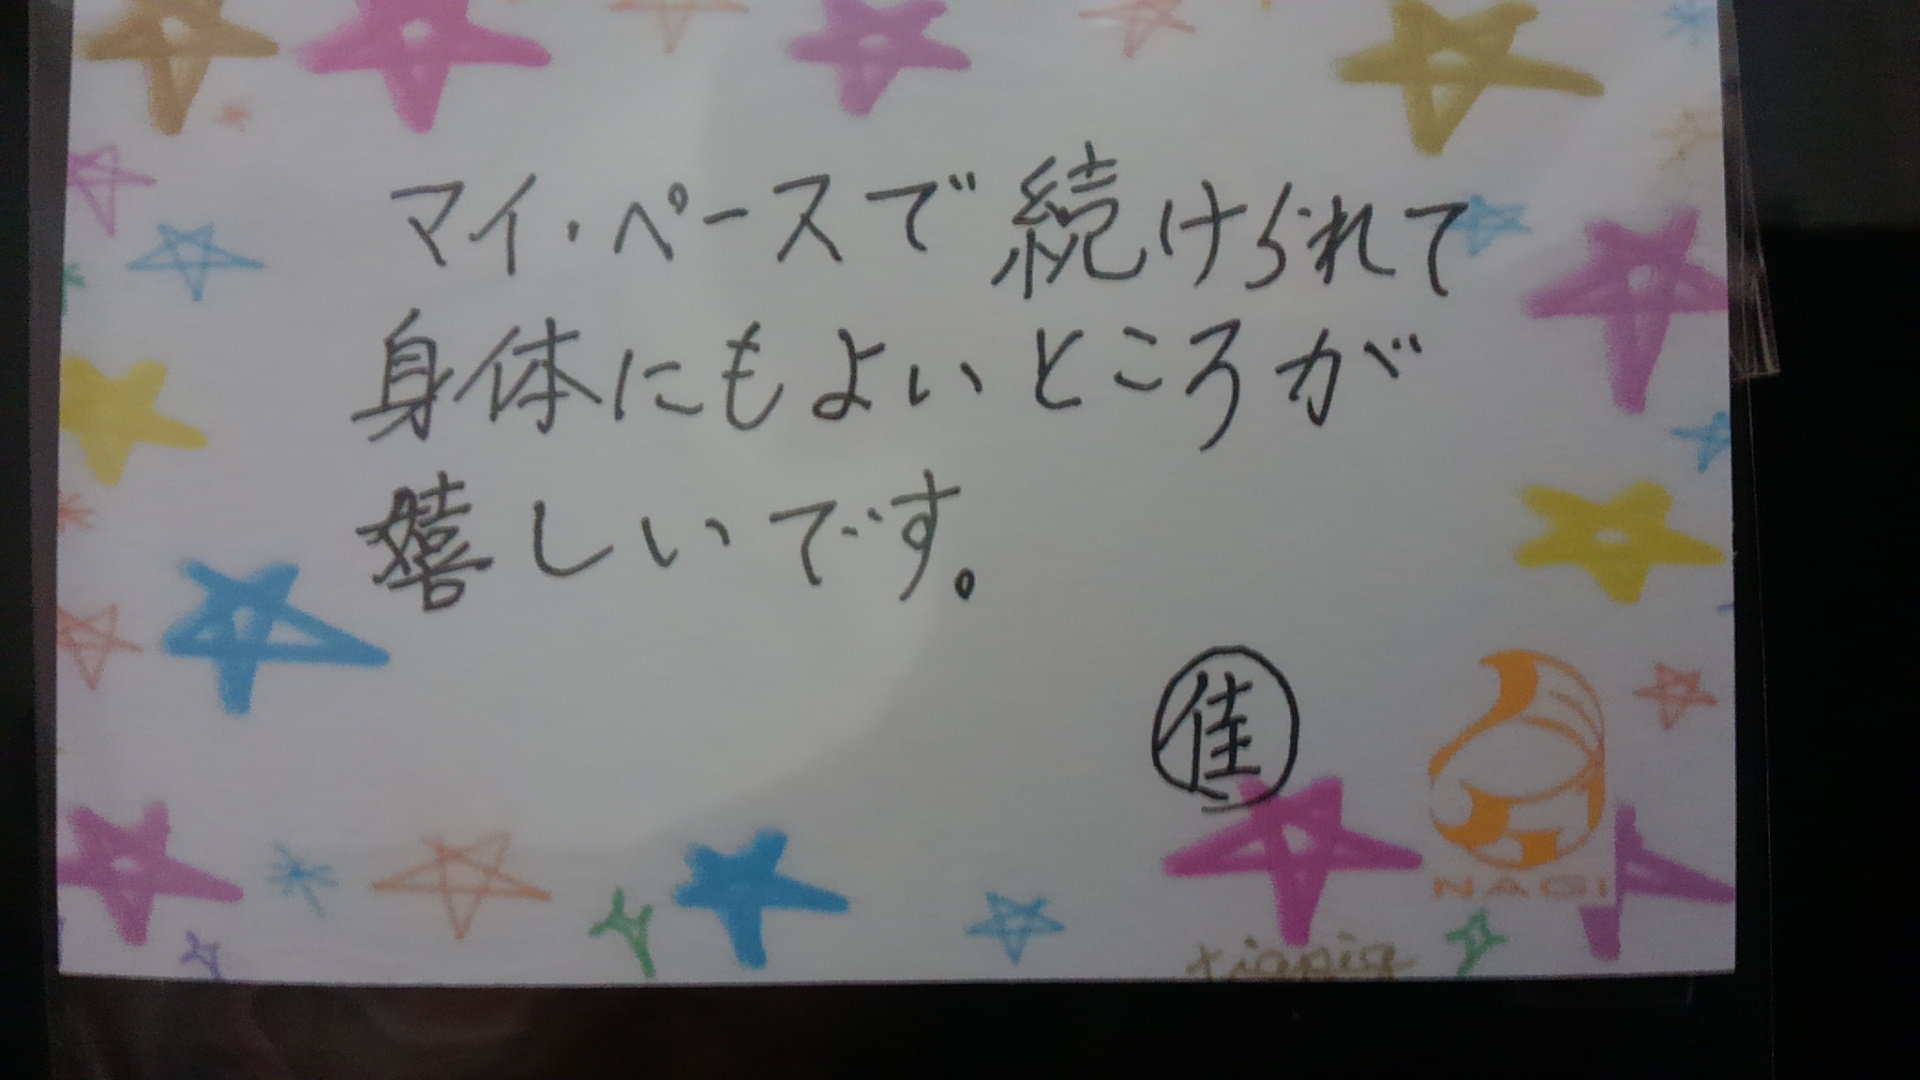 マイ・ペースで続けられて
身体にもよいところが
嬉しいです。
佳
NAGI